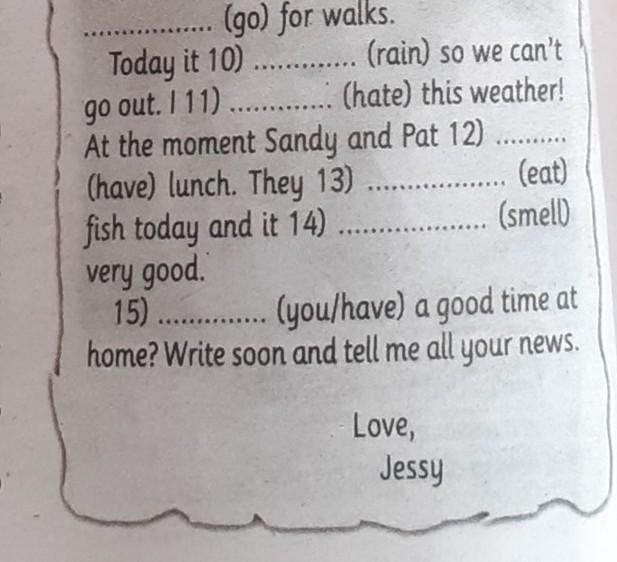 ................. (go) for walks.
Today it 10) ............. (rain) so we can't
go out. I 11) ............. (hate) this weather!
At the moment Sandy and Pat 12) ..........
(have) lunch. They 13) .................. (eat)
fish today and it 14) ................... (smell)
very good.
15) .............. (you/have) a good time at
home? Write soon and tell me all your news.
Love,
Jessy